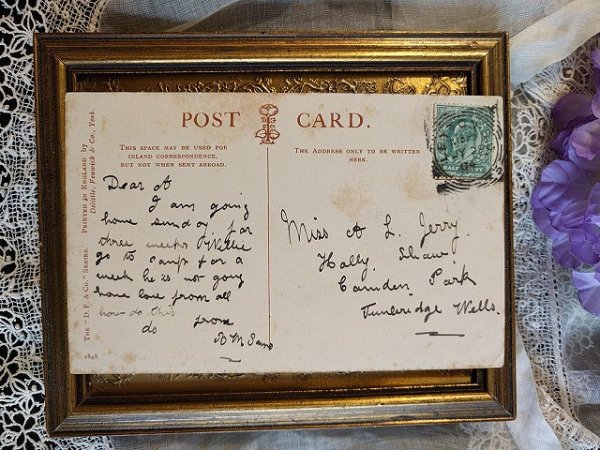 POST CARD.
THIS SPACE MAY BE USED FOR
INLAND CORRESPONDENCE,
BUT NOT WHEN SENT ABROAD.
THE ADDRESS ONLY TO BE WRITTEN
HERE.
THE "D. F. & Co." SERIES. PRINTED IN ENGLAND by
Delittle, Fenwick & Co., York.
1848
Dear A
I am going
home sunday for
three weeks Willie
go to camp for a
week he is not going
home love from all
how do this
do from
R M Sams
Miss A L. Jerry.
Holly Shaw
Camden Park
Tunbridge Wells.
HALF PENNY